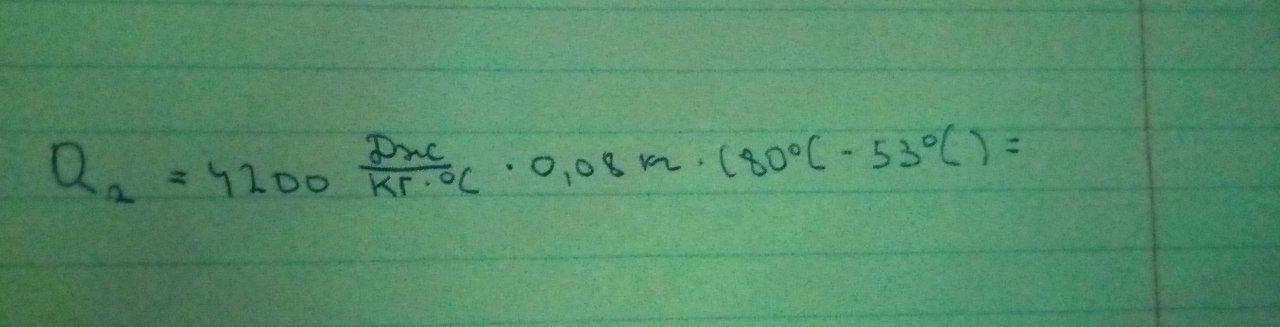 Q₂ = 4200 Дж/кг·°C · 0,08 кг · (80°C - 53°C) =